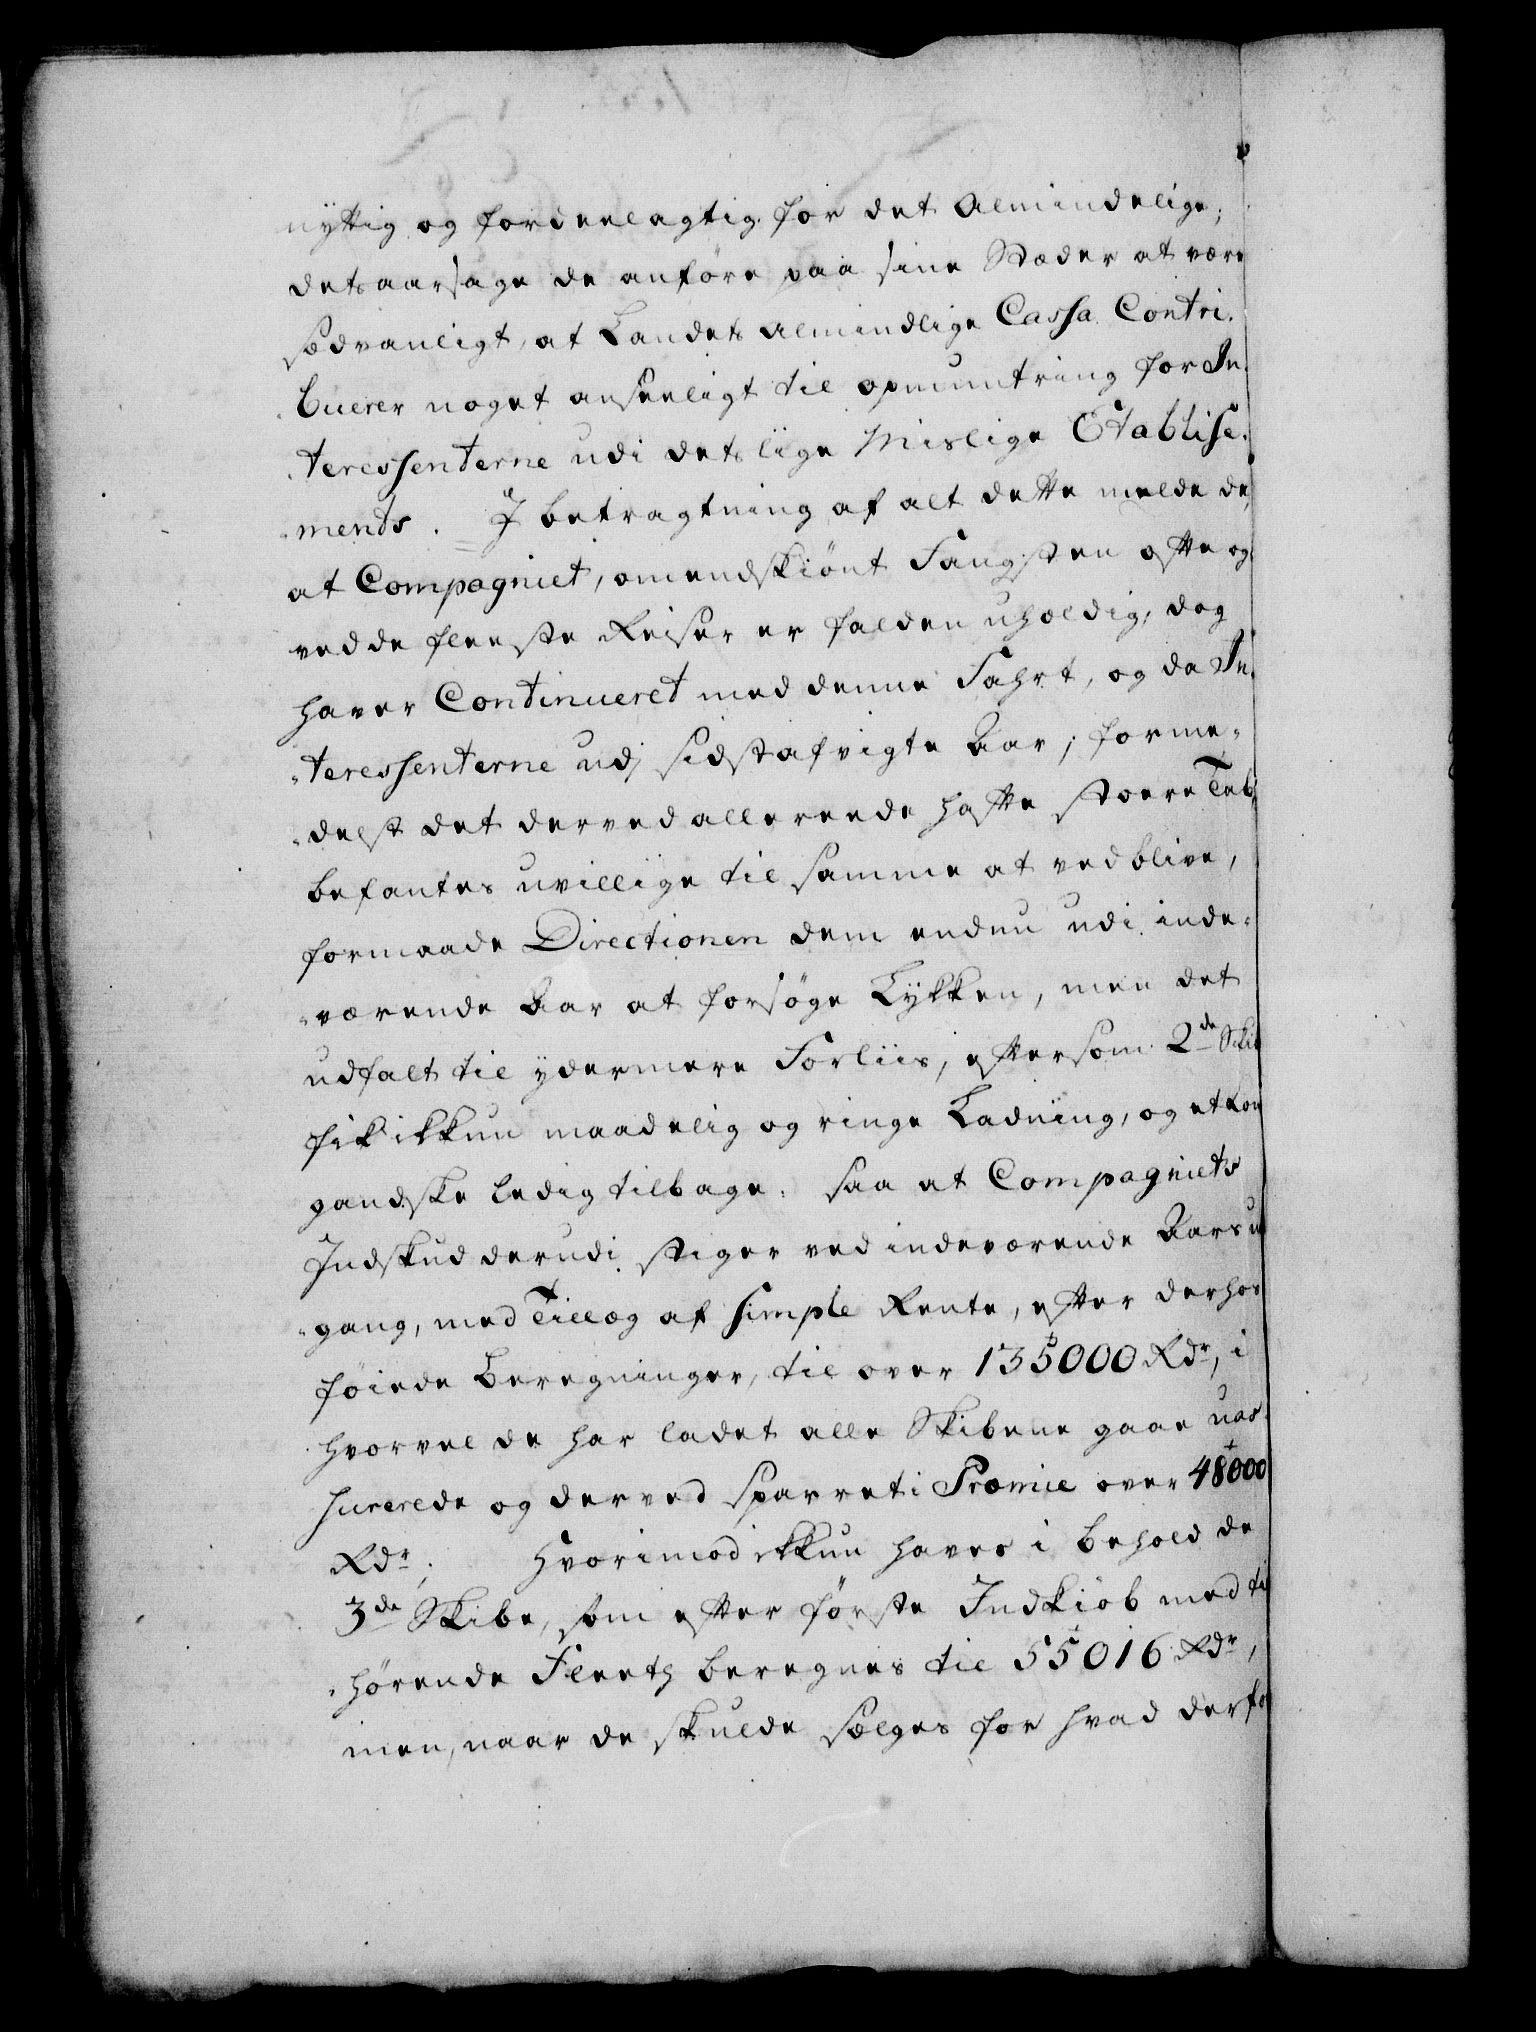 nyttig og fordeelagtig for det Almindelige,
dets aarsage de anföre paa sine Stæder at være
sædvanligt, at Landets almindlige Cassa Contri-
buerer noget anseeligt til opmuntring for In-
teressenterne udi dets lige Mislige Etablise-
ments. I betragtning af alt dette melde de,
at Compagniet, omendskiönt Fangsten ofte og
ved de fleeste Reiser er falden uheldig, dog
haver Continueret med denne Fahrt, og da In-
teressenterne udj sidstafvigte Aar, forme-
delst det derved allereede hafte stoere Tab,
befantes uvillige til samme at vedblive,
formaade Directionen dem endnu udi inde-
værende Aar at forsöge Lykken, men det
udfalt til ydermere Forliis, eftersom 2de Skib
fik ikkun maadelig og ringe Ladning, og et kom
gandske ledig tilbage: saa at Compagniets
Indskud derudi stiger ved indeværende Aars ud
gang, med Tillæg af Simple Rente, efter derhos
föiede Beregninger, til over 135000 Rdr, i
hvorvel de har ladet alle Skibene gaae uas-
surerede og derved sparret i Præmie over 48000
Rdr. Hvorimod ikkun haves i behold de
3de Skibe, som efter förste Indkiöb med til
hørende Fleeth beregnes til 55016 Rdr,
men, naar de skulde sælges for hvad derfor